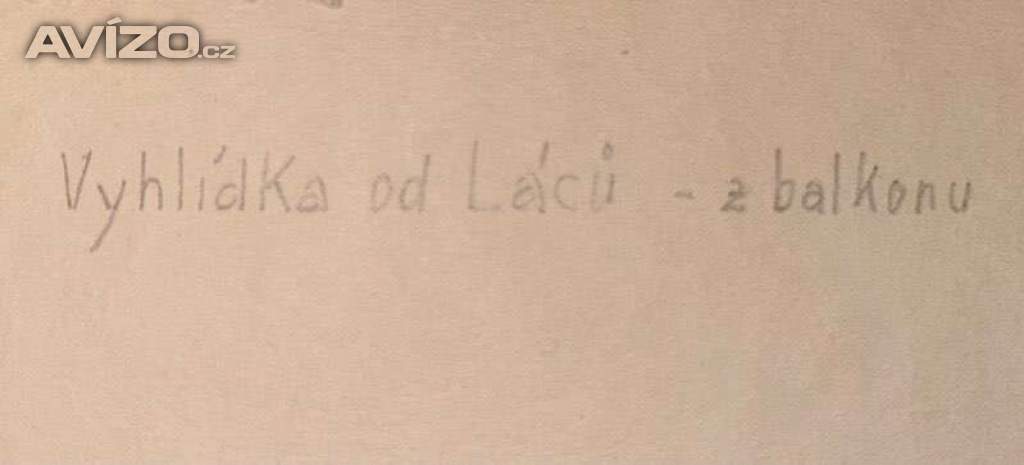 AVÍZO.cz
Vyhlídka od Láců - z balkonu